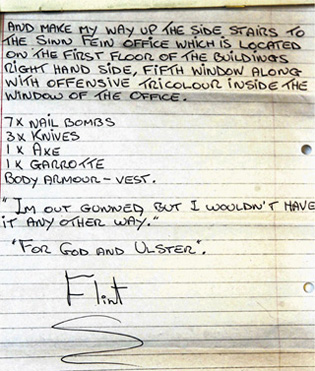 AND MAKE MY WAY UP THE SIDE STAIRS TO
THE SINN FEIN OFFICE WHICH IS LOCATED
ON THE FIRST FLOOR OF THE BUILDINGS
RIGHT HAND SIDE, FIFTH WINDOW ALONG
WITH OFFENSIVE TRICOLOUR INSIDE THE
WINDOW OF THE OFFICE.
7X NAIL BOMBS
3X KNIVES
1X AXE
1X GARROTTE
BODY ARMOUR – VEST.
"IM OUT GUNNED, BUT I WOULDN'T HAVE
IT ANY OTHER WAY."
"FOR GOD AND ULSTER".
Flint